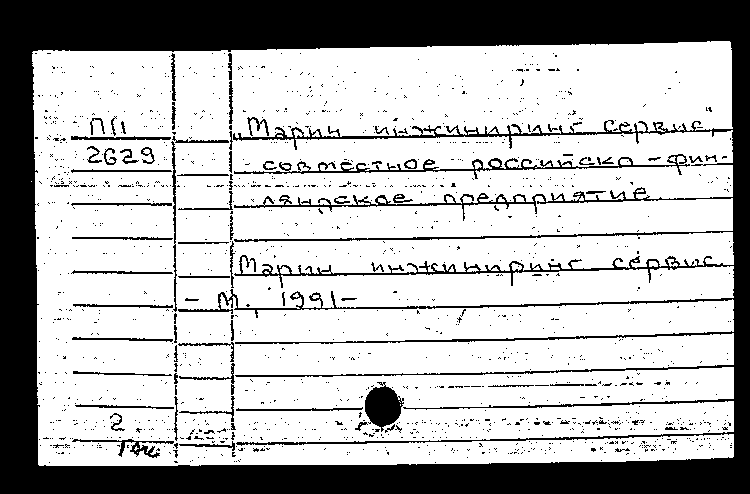 ПП
2629
„Марин инжиниринг сервис",
совместное российско-фин-
ляндское предприятие
Марин инжиниринг сервис.
- М., 1991-
2